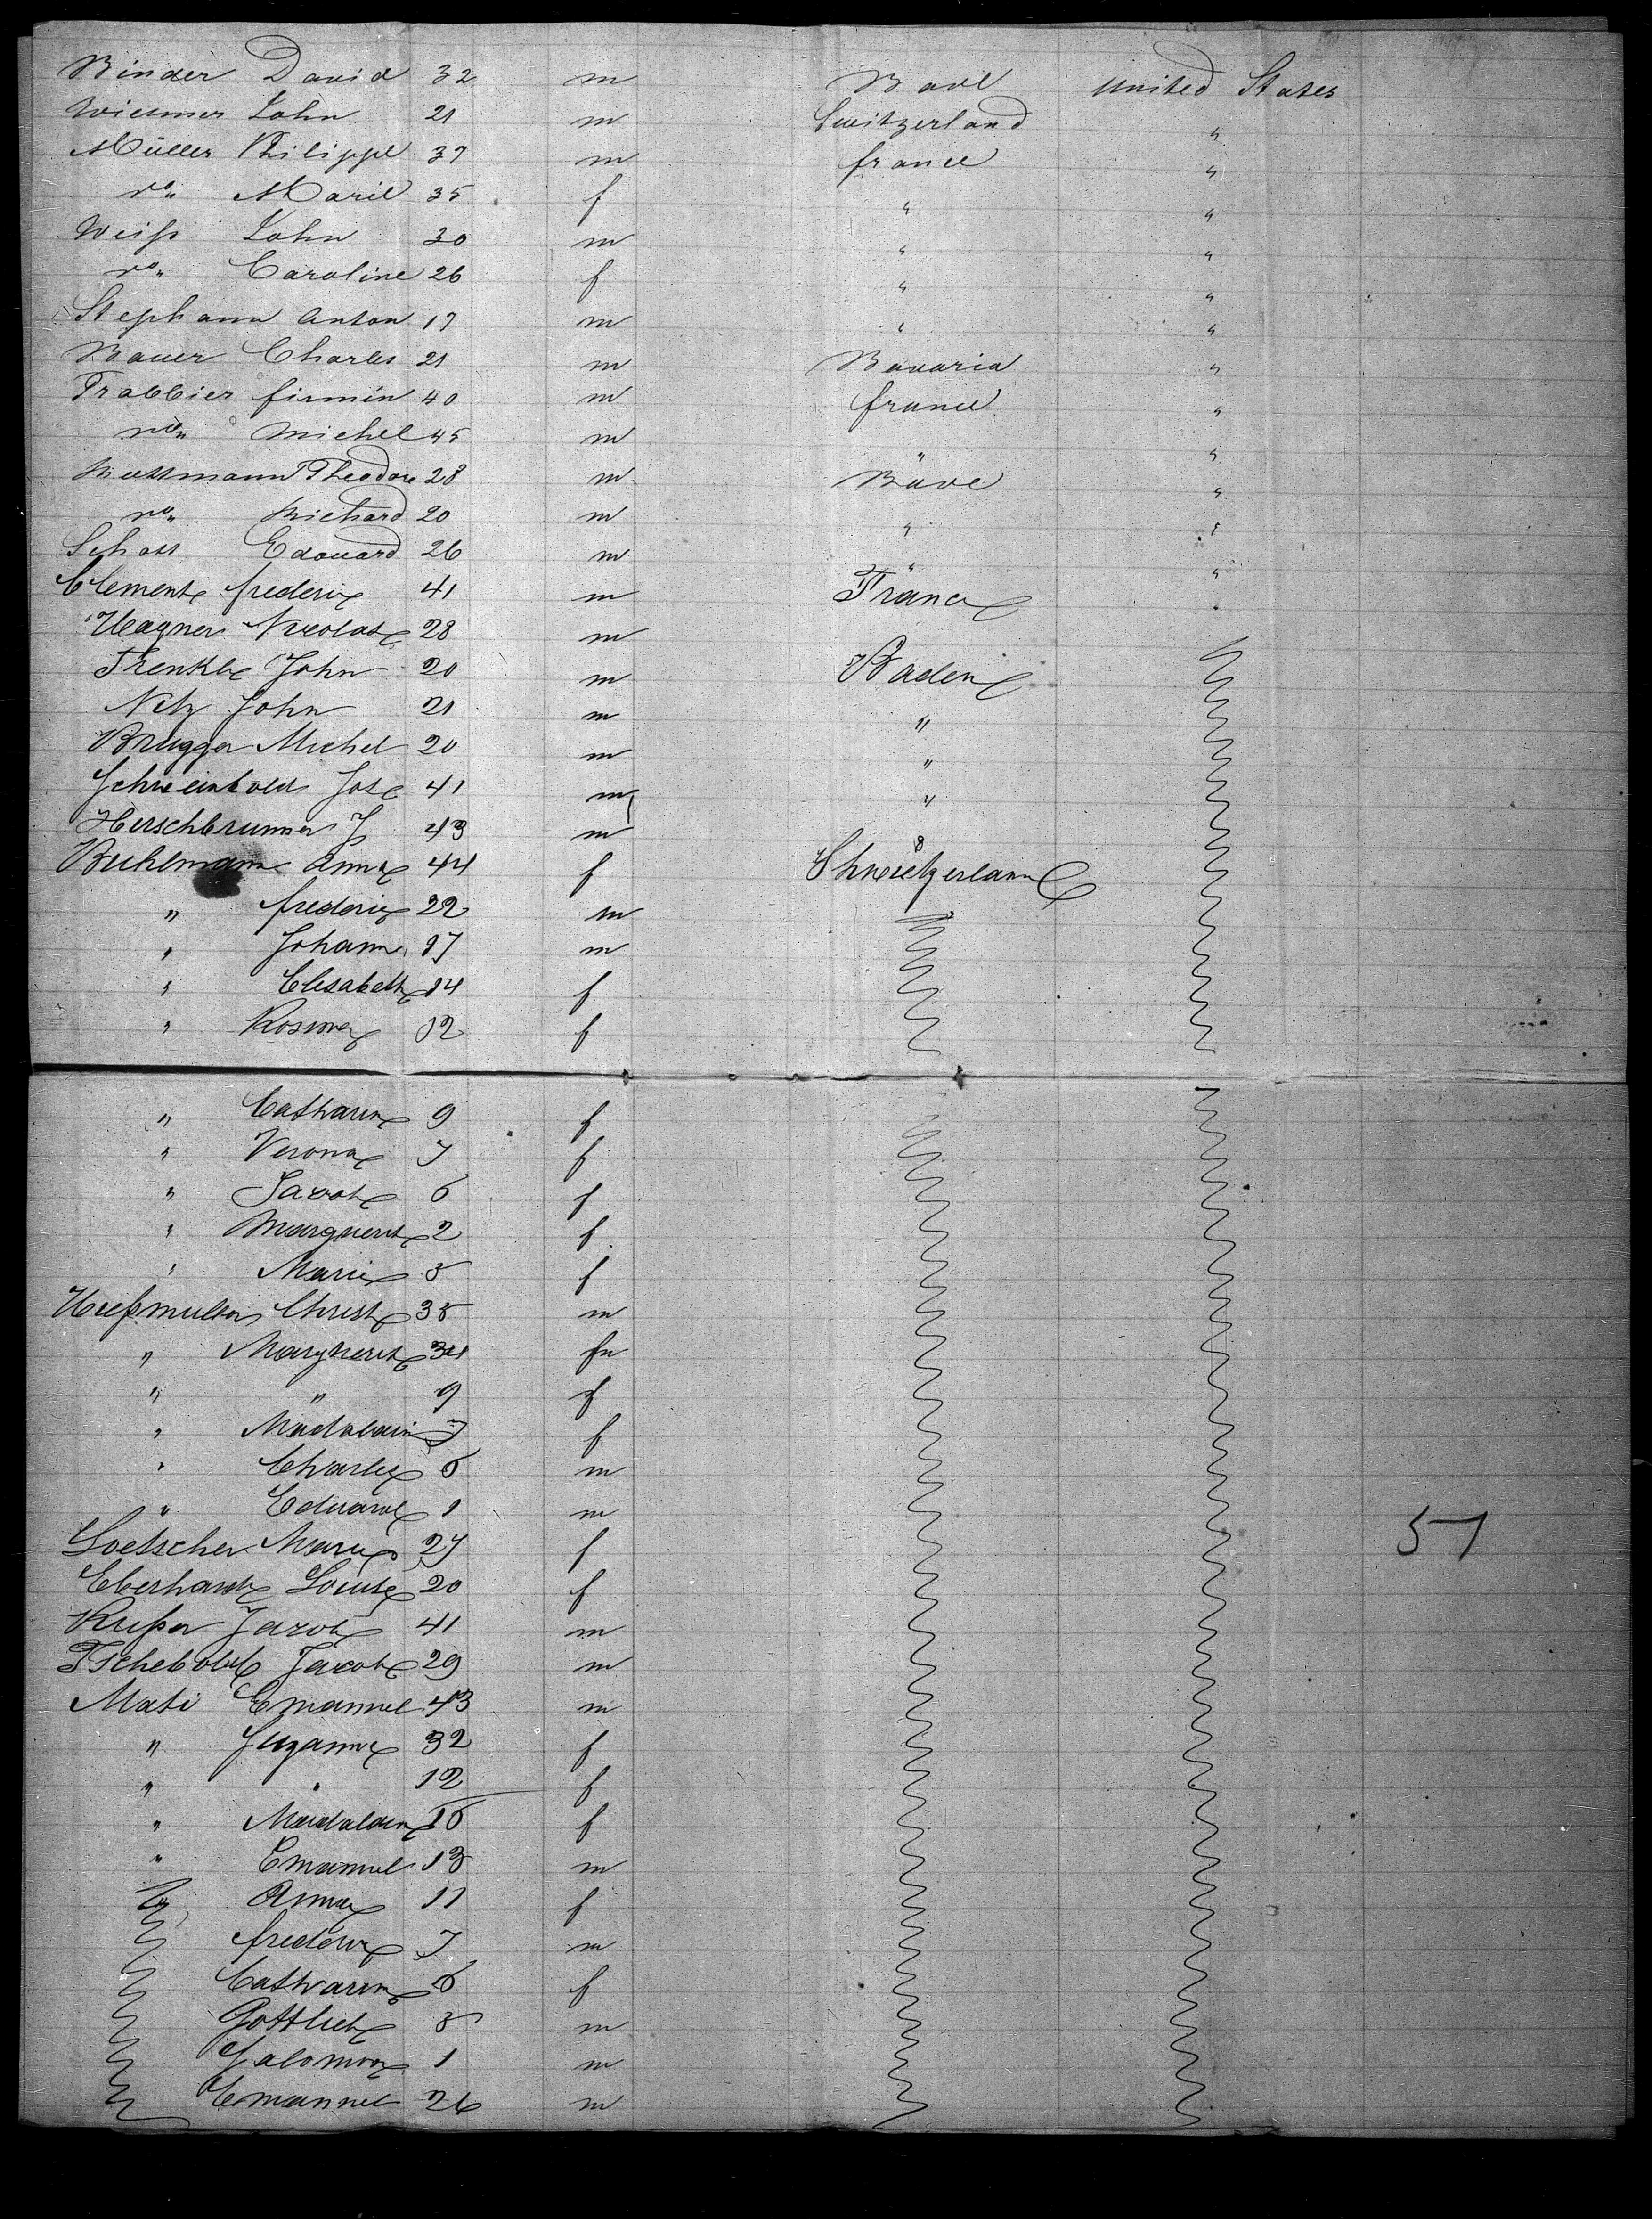 Binder David 32 m Bade United States
Wiesmer John 21 m Switzerland "
Müller Philippe 37 m france "
do" Marie 35 f " "
Weiss John 30 m " "
do" Caroline 26 f " "
Stephann Anton 17 m " "
Bauer Charles 21 m Bavaria "
Trabbier firmin 40 m france "
do" Michel 45 m " "
Theodore 28 m Bade "
do" Richard 20 m " "
Schott Edouard 26 m " "
Clement frederic 41 m France "
Wagner Nicolas 28 m
Trenkle John 20 m Baden
Netz John 21 m "
Brugger Michel 20 m "
Schweinbold Jos 41 m "
Herschbrunner J 43 m "
Buhlmann Anna 44 f Shweitzerland
" frederic 22 m
" Johann 17 m
" Elisabeth 14 f
" Rosina 12 f
" Catharin 9 f
" Verona 7 f
" Jacob 6 f
" Marguerit 2 f
" Marie 5 f
Christ 35 m
" Marguerit 34 f
" " 9 f
" Madalain 7 f
" Charles 6 m
" Eduard 1 m
Loetscher Marie 27 f
51
Eberhard Louise 20 f
Jacob 41 m
Tschebold Jacob 29 m
Mati Emanuel 43 m
" Suzanne 32 f
" " 12 f
" Madalain 16 f
" Emanuel 13 m
" Anna 11 f
frederic 7 m
Catharin 6 f
Gottlieb 5 m
Salomon 1 m
Emanuel 26 m